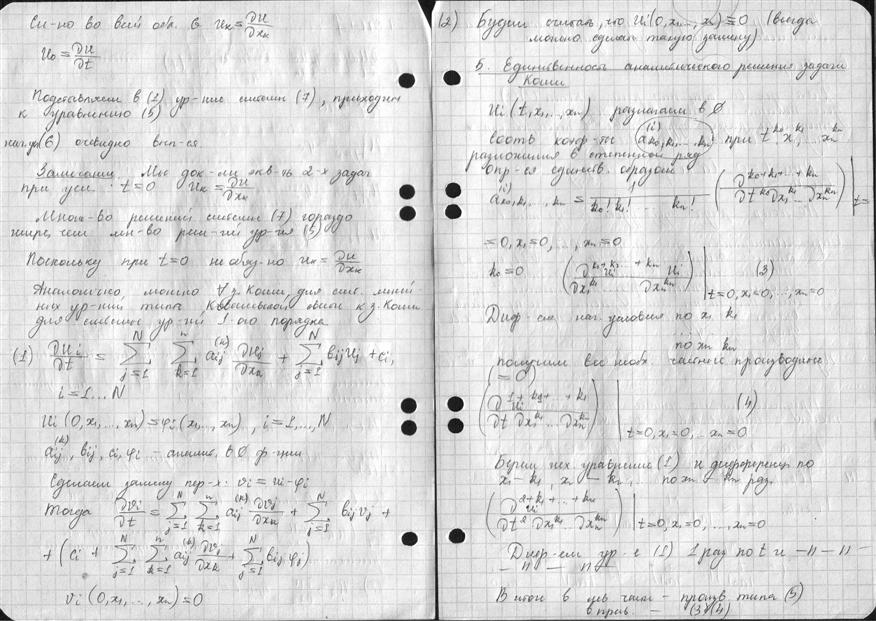 Сл-но во всей обл. в u_k = ∂u/∂x_k
u_0 = ∂u/∂t
Подставляем в (2) ур-ние систем (7), приходим
к уравнению (5)
нач. ур (6) очевидно вып-ся.
Замечание. Мы док-ли экв-ть 2-х задач
при усл. t=0 u_k = ∂u/∂x_k
Множ-во решений системы (7) гораздо
шире, чем мн-во реш-ний ур-ия (5)
Поскольку при t=0 не обяз-но u_k = ∂u/∂x_k
Аналогично, можно ∀ з. Коши для сист. линей-
ных ур-ний типа Ковалевской свести к з. Коши
для системы ур-ний 1-ого порядка
(1) ∂u_i/∂t = ∑_{j=1}^{N} ∑_{k=1}^{n} a_{ij}^{(k)} ∂u_j/∂x_k + ∑_{j=1}^{N} b_{ij} u_j + c_i,
i = 1...N
u_i(0, x_1, ..., x_n) = φ_i(x_1, ..., x_n), i = 1, ..., N
a_{ij}^{(k)}, b_{ij}, c_i, φ_i – аналит. в 0 ф-ции
Сделаем замену пер-х: v_i = u_i - φ_i
Тогда ∂v_i/∂t = ∑_{j=1}^{N} ∑_{k=1}^{n} a_{ij}^{(k)} ∂v_j/∂x_k + ∑_{j=1}^{N} b_{ij} v_j +
+ (c_i + ∑_{j=1}^{N} ∑_{k=1}^{n} a_{ij}^{(k)} ∂φ_j/∂x_k + ∑_{j=1}^{N} b_{ij} φ_j)
v_i(0, x_1, ..., x_n) = 0
(2) Будем считать, что u_i(0, x_1, ..., x_n) ≡ 0 (всегда
можно сделать такую замену)
5. Единственность аналитического решения задачи
Коши
u_i(t, x_1, ..., x_n) разлагаем в 0
коэф-ты a_{k_0, k_1, ..., k_n}^{(i)} при t^{k_0} x_1^{k_1} ... x_n^{k_n}
разложения в степенной ряд
опр-ся единств. образом
a_{k_0, k_1, ..., k_n}^{(i)} = 1/(k_0! k_1! ... k_n!) (∂^{k_0+k_1+...+k_n}/∂t^{k_0} ∂x_1^{k_1} ... ∂x_n^{k_n}) |_{t=
= 0, x_1=0, ..., x_n=0
k_0 = 0 (∂^{k_1+k_2...+k_n} u_i/∂x_1^{k_1} ... ∂x_n^{k_n}) |_{t=0, x_1=0, ..., x_n=0} (3)
Диф-ем нач. условия по x_1 k_1
по x_n k_n
получим все необх. частные производные
(=0)
(∂^{1+k_1+...+k_n} u_i/∂t ∂x_1^{k_1} ... ∂x_n^{k_n}) |_{t=0, x_1=0, ... x_n=0} (4)
Берем их уравнение (1) и дифференц. по
x_1 – k_1, x_2 – k_2, ... по x_n – k_n раз
(∂^{2+k_1+...+k_n} u_i/∂t^2 ∂x_1^{k_1} ... ∂x_n^{k_n}) |_{t=0, x_1=0, ..., x_n=0}
Диф-ем ур-е (1) 1 раз по t и –||–||–
– || – || –
В итоге в лев. части – произв. типа (5)
в прав. – (3)(4)